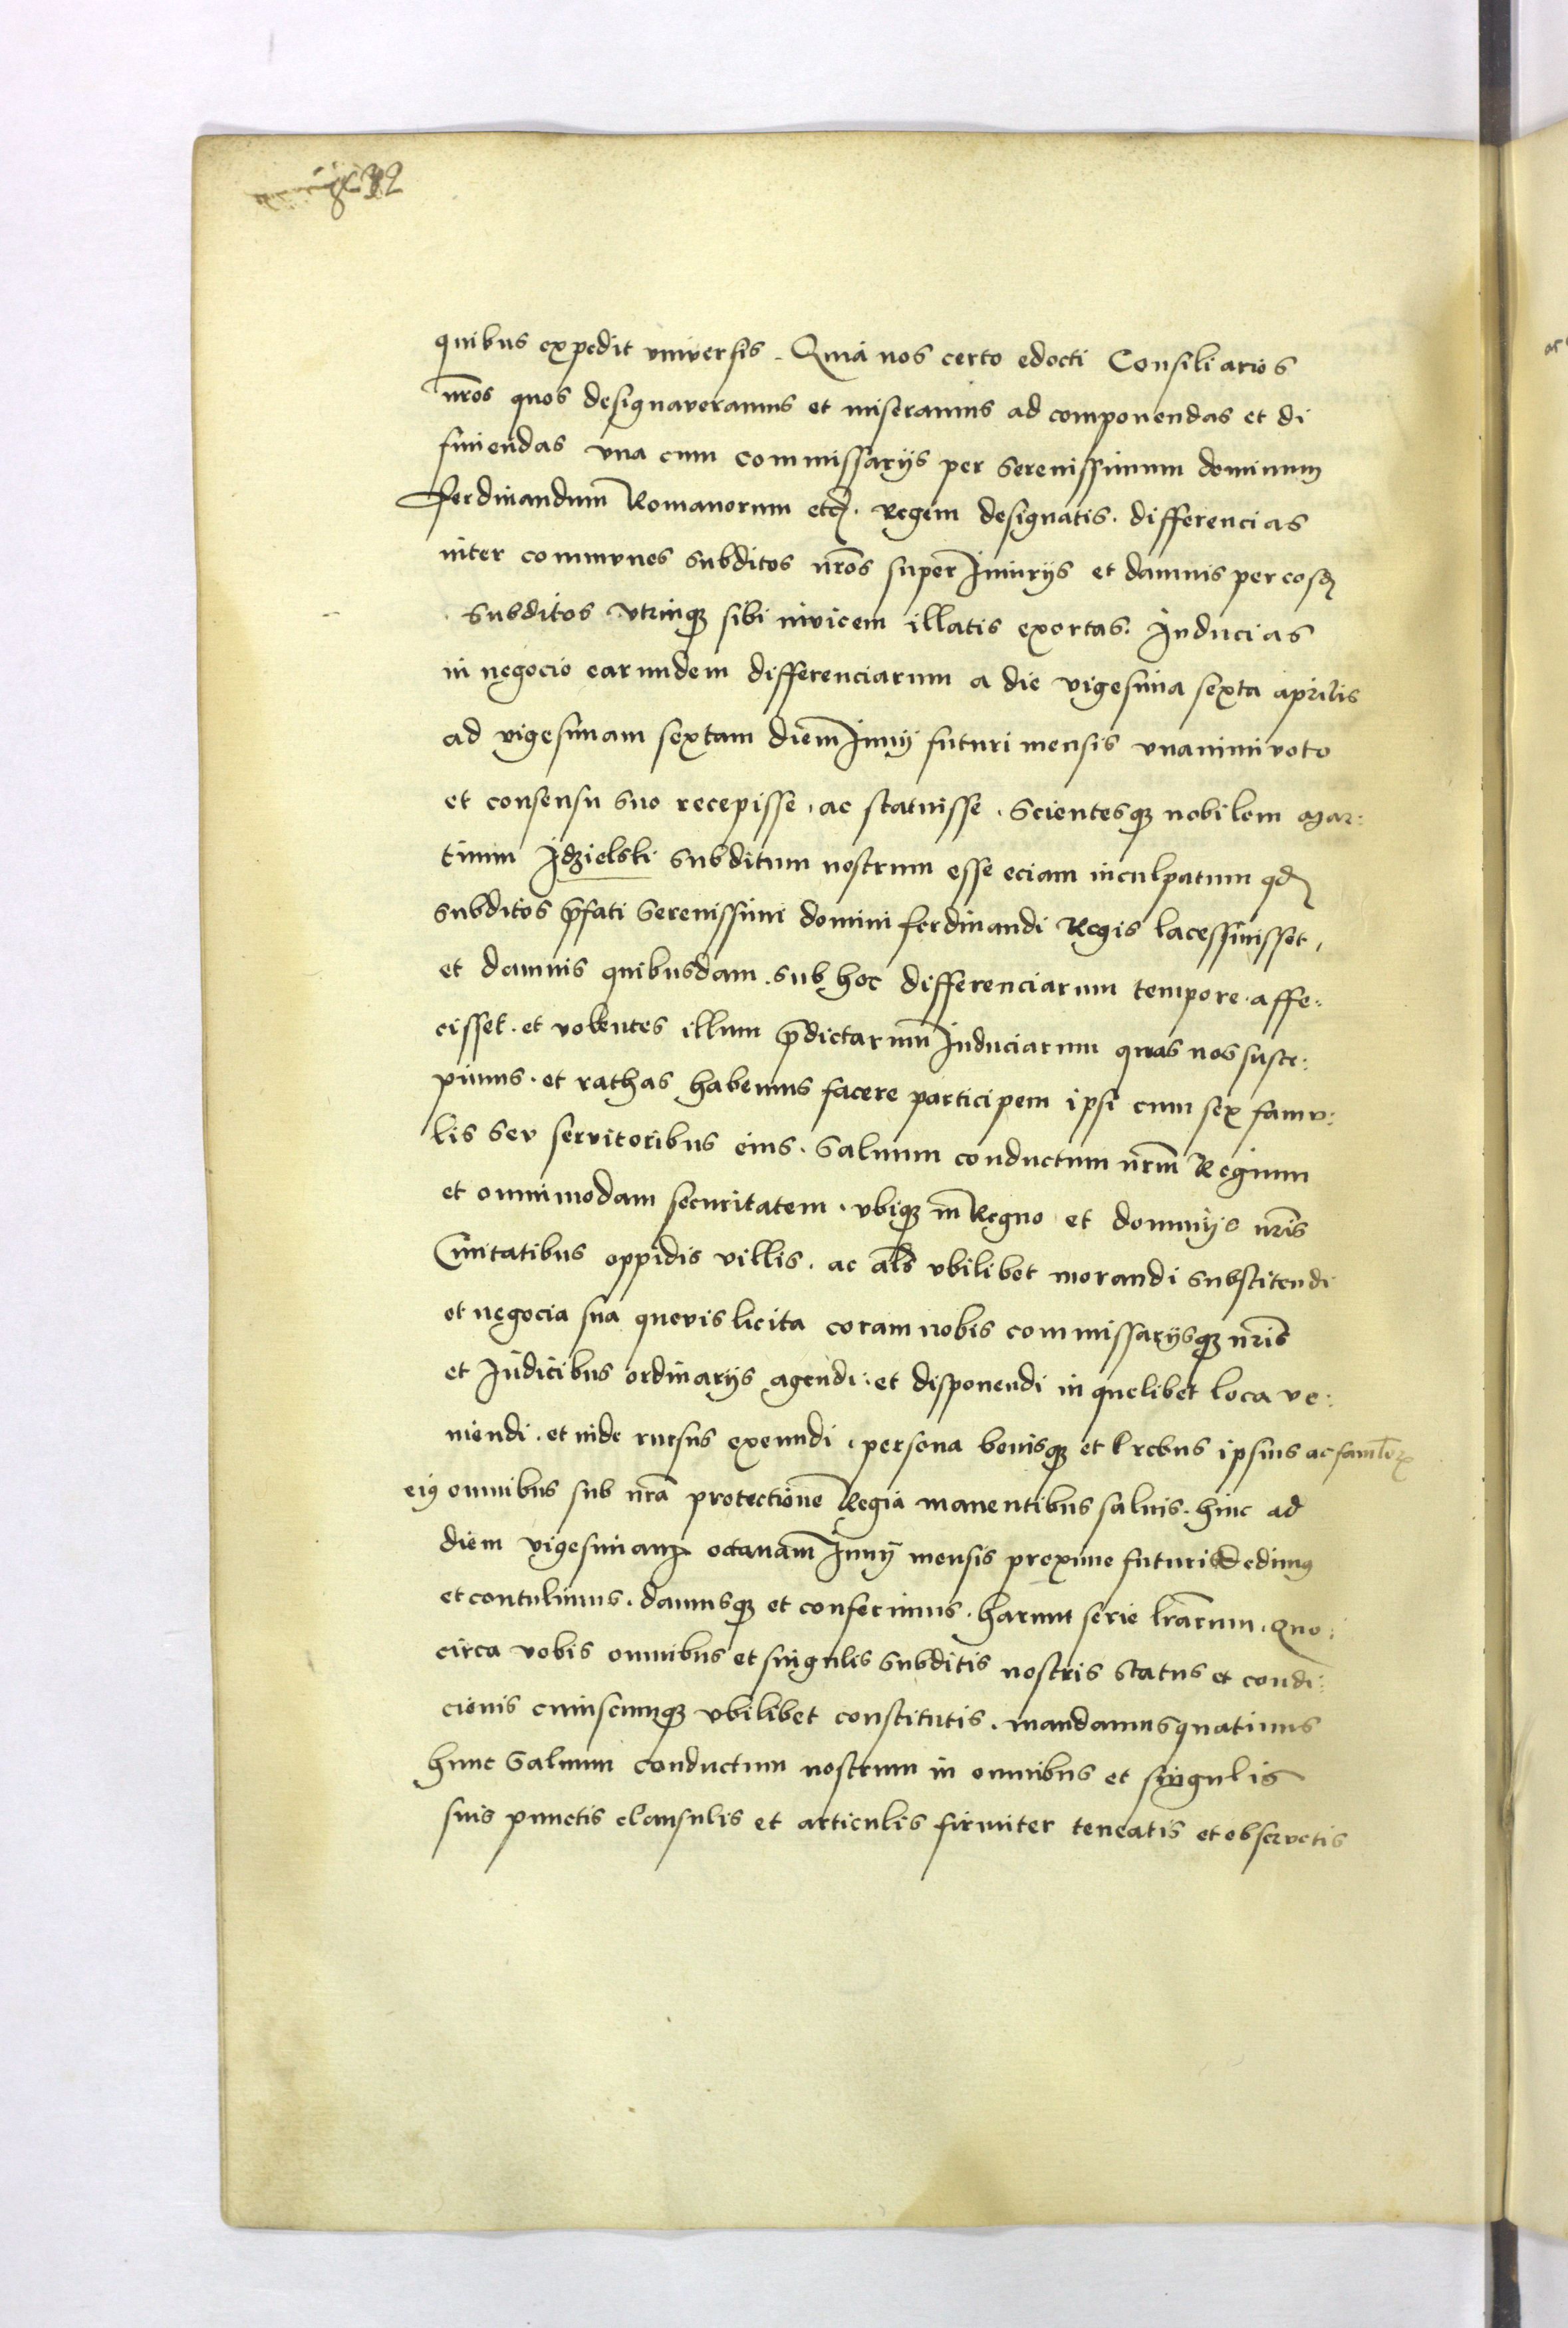 quibus expedit vniversis. Quia nos certo edocti Consiliarios
nr̃os quos designaveramus et miseramus ad componendas et di
finiendas vna cum commissarijs per Serenissimum dominum
Ferdinandum Romanorum etc. Regem designatis. differencias
inter communes subditos nr̃os super Iniurijs et damnis per eosd
subditos vtrinq sibi invicem illatis exortas. Inducias
in negocio earundem differenciarum a die vigesima sexta aprilis
ad vigesimam sextam diem Iunij futuri mensis vnanimi voto
et consensu suo recepisse, ac statuisse. Scientesq nobilem Mar:
tinum Idzielski subditum nostrum esse eciam inculpatum qd
subditos p̄fati Serenissimi domini ferdinandi Regis lacessiuisset,
et damnis quibusdam sub hoc differenciarum tempore affe:
cisset. et volentes illum p̄dictarum Induciarum quas nos susce:
pimus. et rathas habemus facere participem ipsi cum sex famu:
lis seu servitoribus eius. Saluum conductum nr̃m Regium
et omnimodam securitatem. vbiq in Regno et dominijs nr̃is
Ciuitatibus oppidis villis. ac al̃s vbilibet morandi substitendi
et negocia sua quevis licita coram nobis commissarijsq nr̃is
et Iudicibus ordinarijs agendi: et disponendi in quelibet loca ve:
niendi. et inde rursus exeundi. persona bonisq et rebus ipsius ac faml̃orum
eiq omnibus sub nr̃a protectione Regia manentibus saluis. hinc ad
diem vigesimam octavam Iunij mensis proxime futuri dedimq
et contulimus. damusq et conferimus. harum serie lr̃arum. Quo:
circa vobis omnibus et singulis subditis nostris status et condi:
cionis cuiuscunq vbilibet constitutis. mandamus quatinus
hunc Saluum conductum nostrum in omnibus et singulis
suis punctis clausulis et articulis firmiter teneatis et observetis